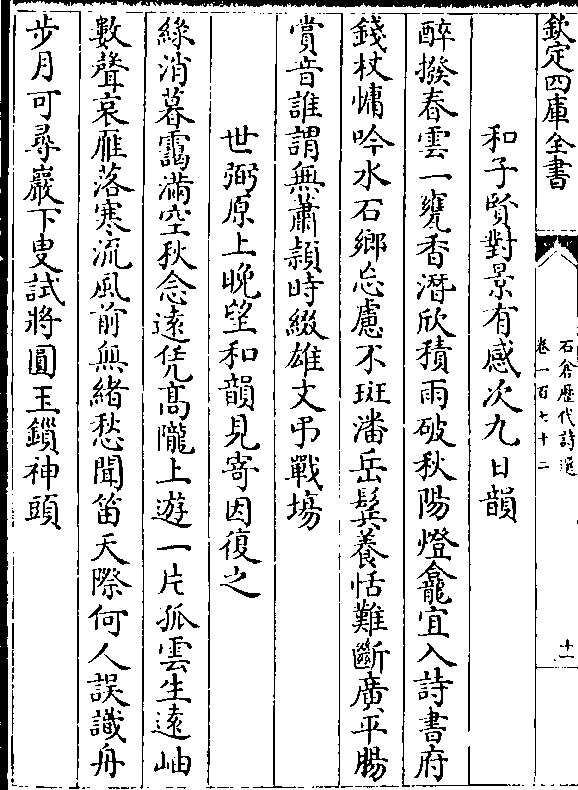 欽定四庫全書
石倉歴代詩選
卷一百七十二
十一
和子賢對景有感次九日韻
醉撥春雲一甕香潛欣積雨破秋陽燈龕宜入詩書府
錢杖慵吟水石鄉忘慮不斑潘岳鬂養恬難斷廣平腸
賞音誰謂無蕭頴時綴雄文弔戰塲
世弼原上晚望和韻見寄因復之
綠消暮靄滿空秋念遠凭髙隴上遊一片孤雲生遠岫
數聲哀雁落寒流風前無緒愁聞笛天際何人誤識舟
步月可尋巖下叟試將圓玉鎻神頭